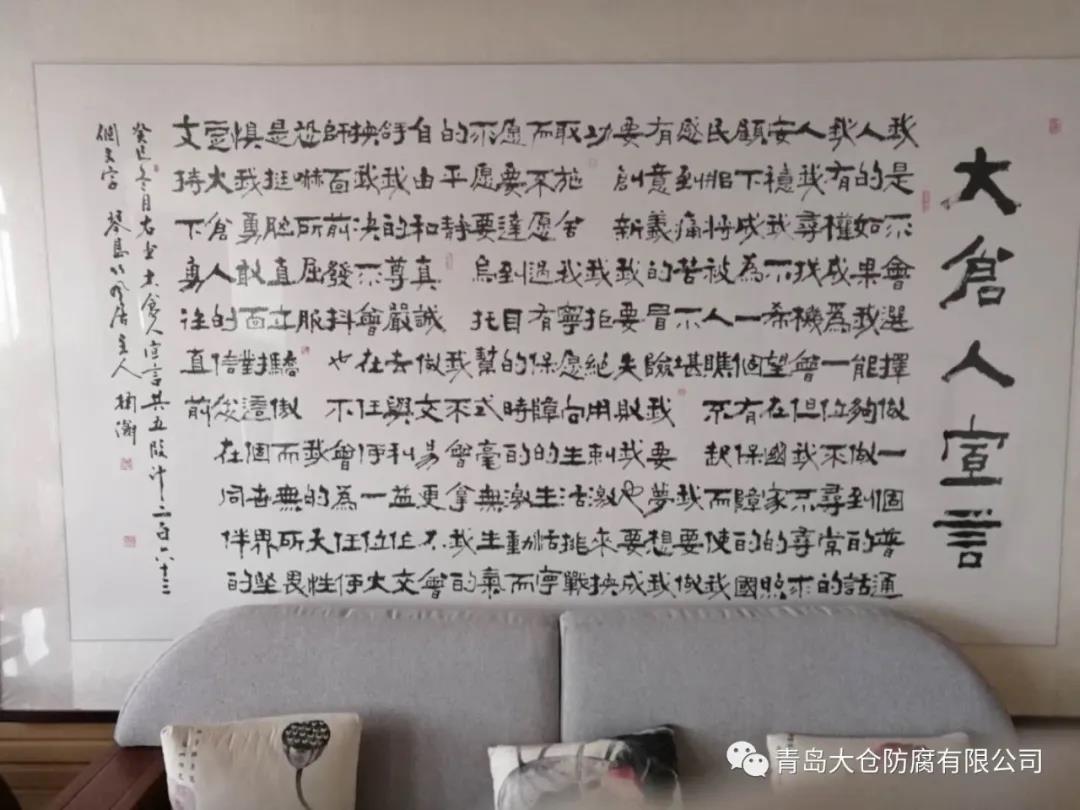 大倉人宣言
我是不會選擇做一個普通
人的如果我能夠做到的話
我有權成為一位不尋常的
人我尋找機會但我不尋求
安穩我不希望在國家的照
顧下成為一個有保障的國
民將被人瞧不起而使我
感到痛苦不堪我要做
有意義的冒險我要夢想我
要創新我要失敗我也要成
功我拒絕用刺激來換
取施舍我寧愿向生活挑戰
而不愿過有保障的生活寧
愿要達到目的時的激動而
不愿要烏托幫式的毫無生氣
的平靜我不會拿我的
自由和真誠做交易更不會
我的尊嚴去與利益作交
換我決不會在任何一位大
師面前發抖也不會為任何
恐嚇所屈服我的天性
是挺胆直立驕傲而無所畏
惧我勇敢面對這個世界堅
定大倉人的信在同伴的
支持下勇往直前
癸巳冬月右書大倉人宣言共五段計二百六十三
個文字 琴島竹風居主人
青岛大仓防腐有限公司